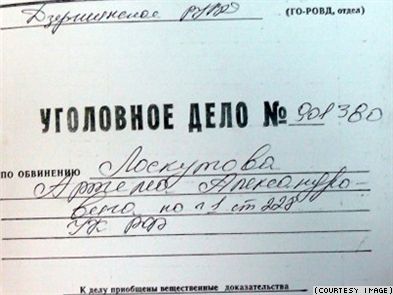 Дзержинское РУВД (ГО-РОВД, отдел)
УГОЛОВНОЕ ДЕЛО № 901380
ПО ОБВИНЕНИЮ Лоскутова
Артема Александро-
вича по ч 1 ст 228
УК РФ
К делу приобщены вещественные доказательства
(COURTESY IMAGE)